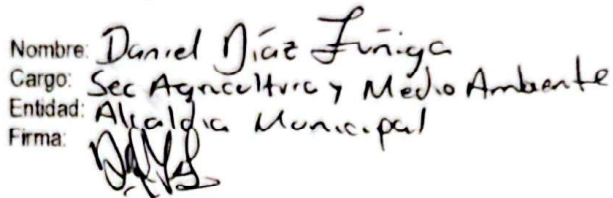 Nombre: Daniel Díaz Zuñiga
Cargo: Sec Agricultura y Medio Ambiente
Entidad: Alcaldia Municipal
Firma: